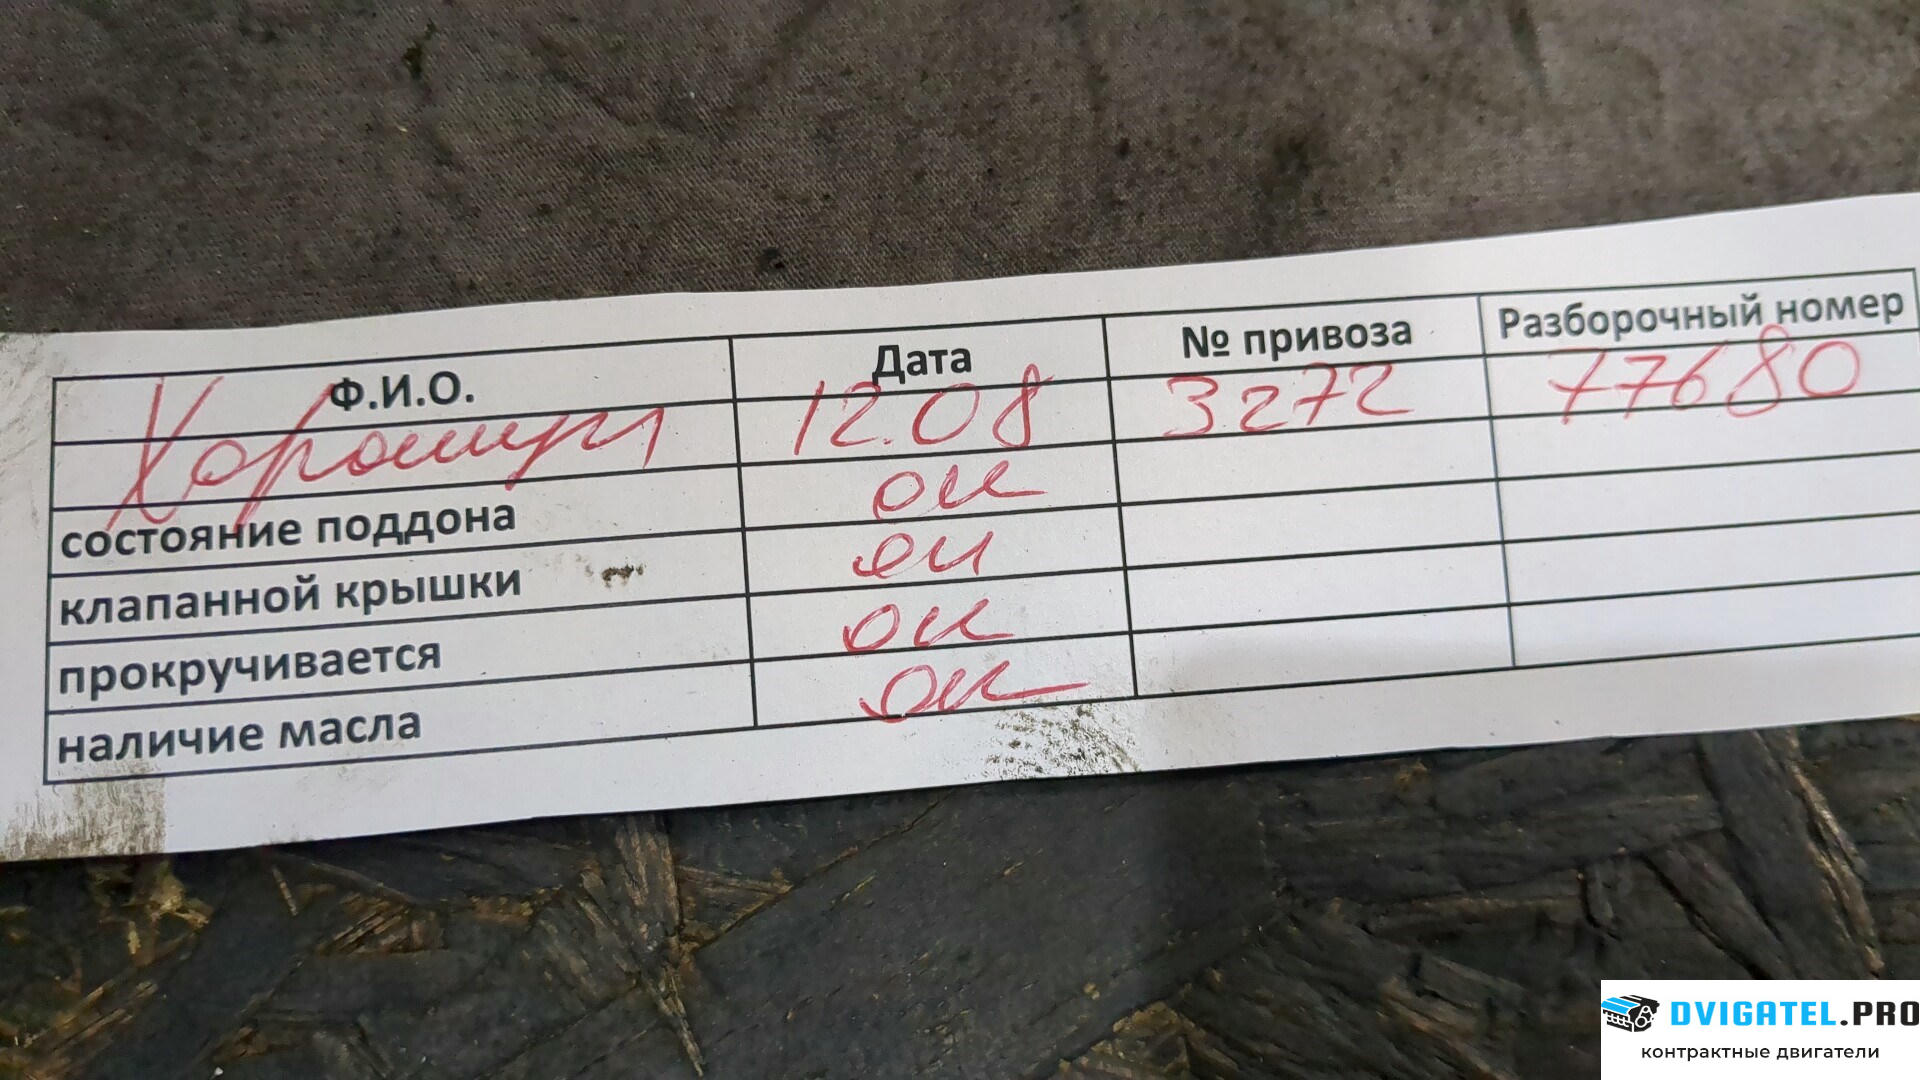 Ф.И.О. Дата № привоза Разборочный номер
12.08 3272 77680
состояние поддона ок
клапанной крышки ок
прокручивается ок
наличие масла ок
DVIGATEL.PRO
контрактные двигатели